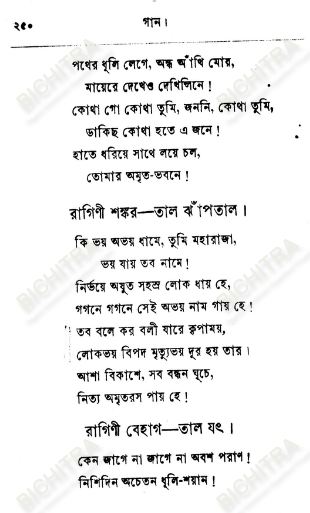 ২৫০
গান।
পথের ধূলি লেগে, অন্ধ আঁখি মোর,
মায়েরে দেখেও দেখিলিনে!
কোথা গো কোথা তুমি, জননি, কোথা তুমি,
ডাকিছ কোথা হতে এ জনে!
হাতে ধরিয়ে সাথে লয়ে চল,
তোমার অমৃত-ভবনে!
রাগিণী শঙ্কর—তাল ঝাঁপতাল।
কি ভয় অভয় ধামে, তুমি মহারাজা,
ভয় যায় তব নামে!
নির্ভয়ে অযুত সহস্র লোক ধায় হে,
গগনে গগনে সেই অভয় নাম গায় হে!
তব বলে কর বলী যারে কৃপাময়,
লোকভয় বিপদ মৃত্যুভয় দূর হয় তার।
আশা বিকাশে, সব বন্ধন ঘূচে,
নিত্য অমৃতরস পায় হে!
রাগিণী বেহাগ—তাল যৎ।
কেন জাগে না জাগে না অবশ পরাণ!
নিশিদিন অচেতন ধূলি-শয়ান!
BICHITRA
BICHITRA
BICHITRA
BICHITRA
BICHITRA
BICHITRA